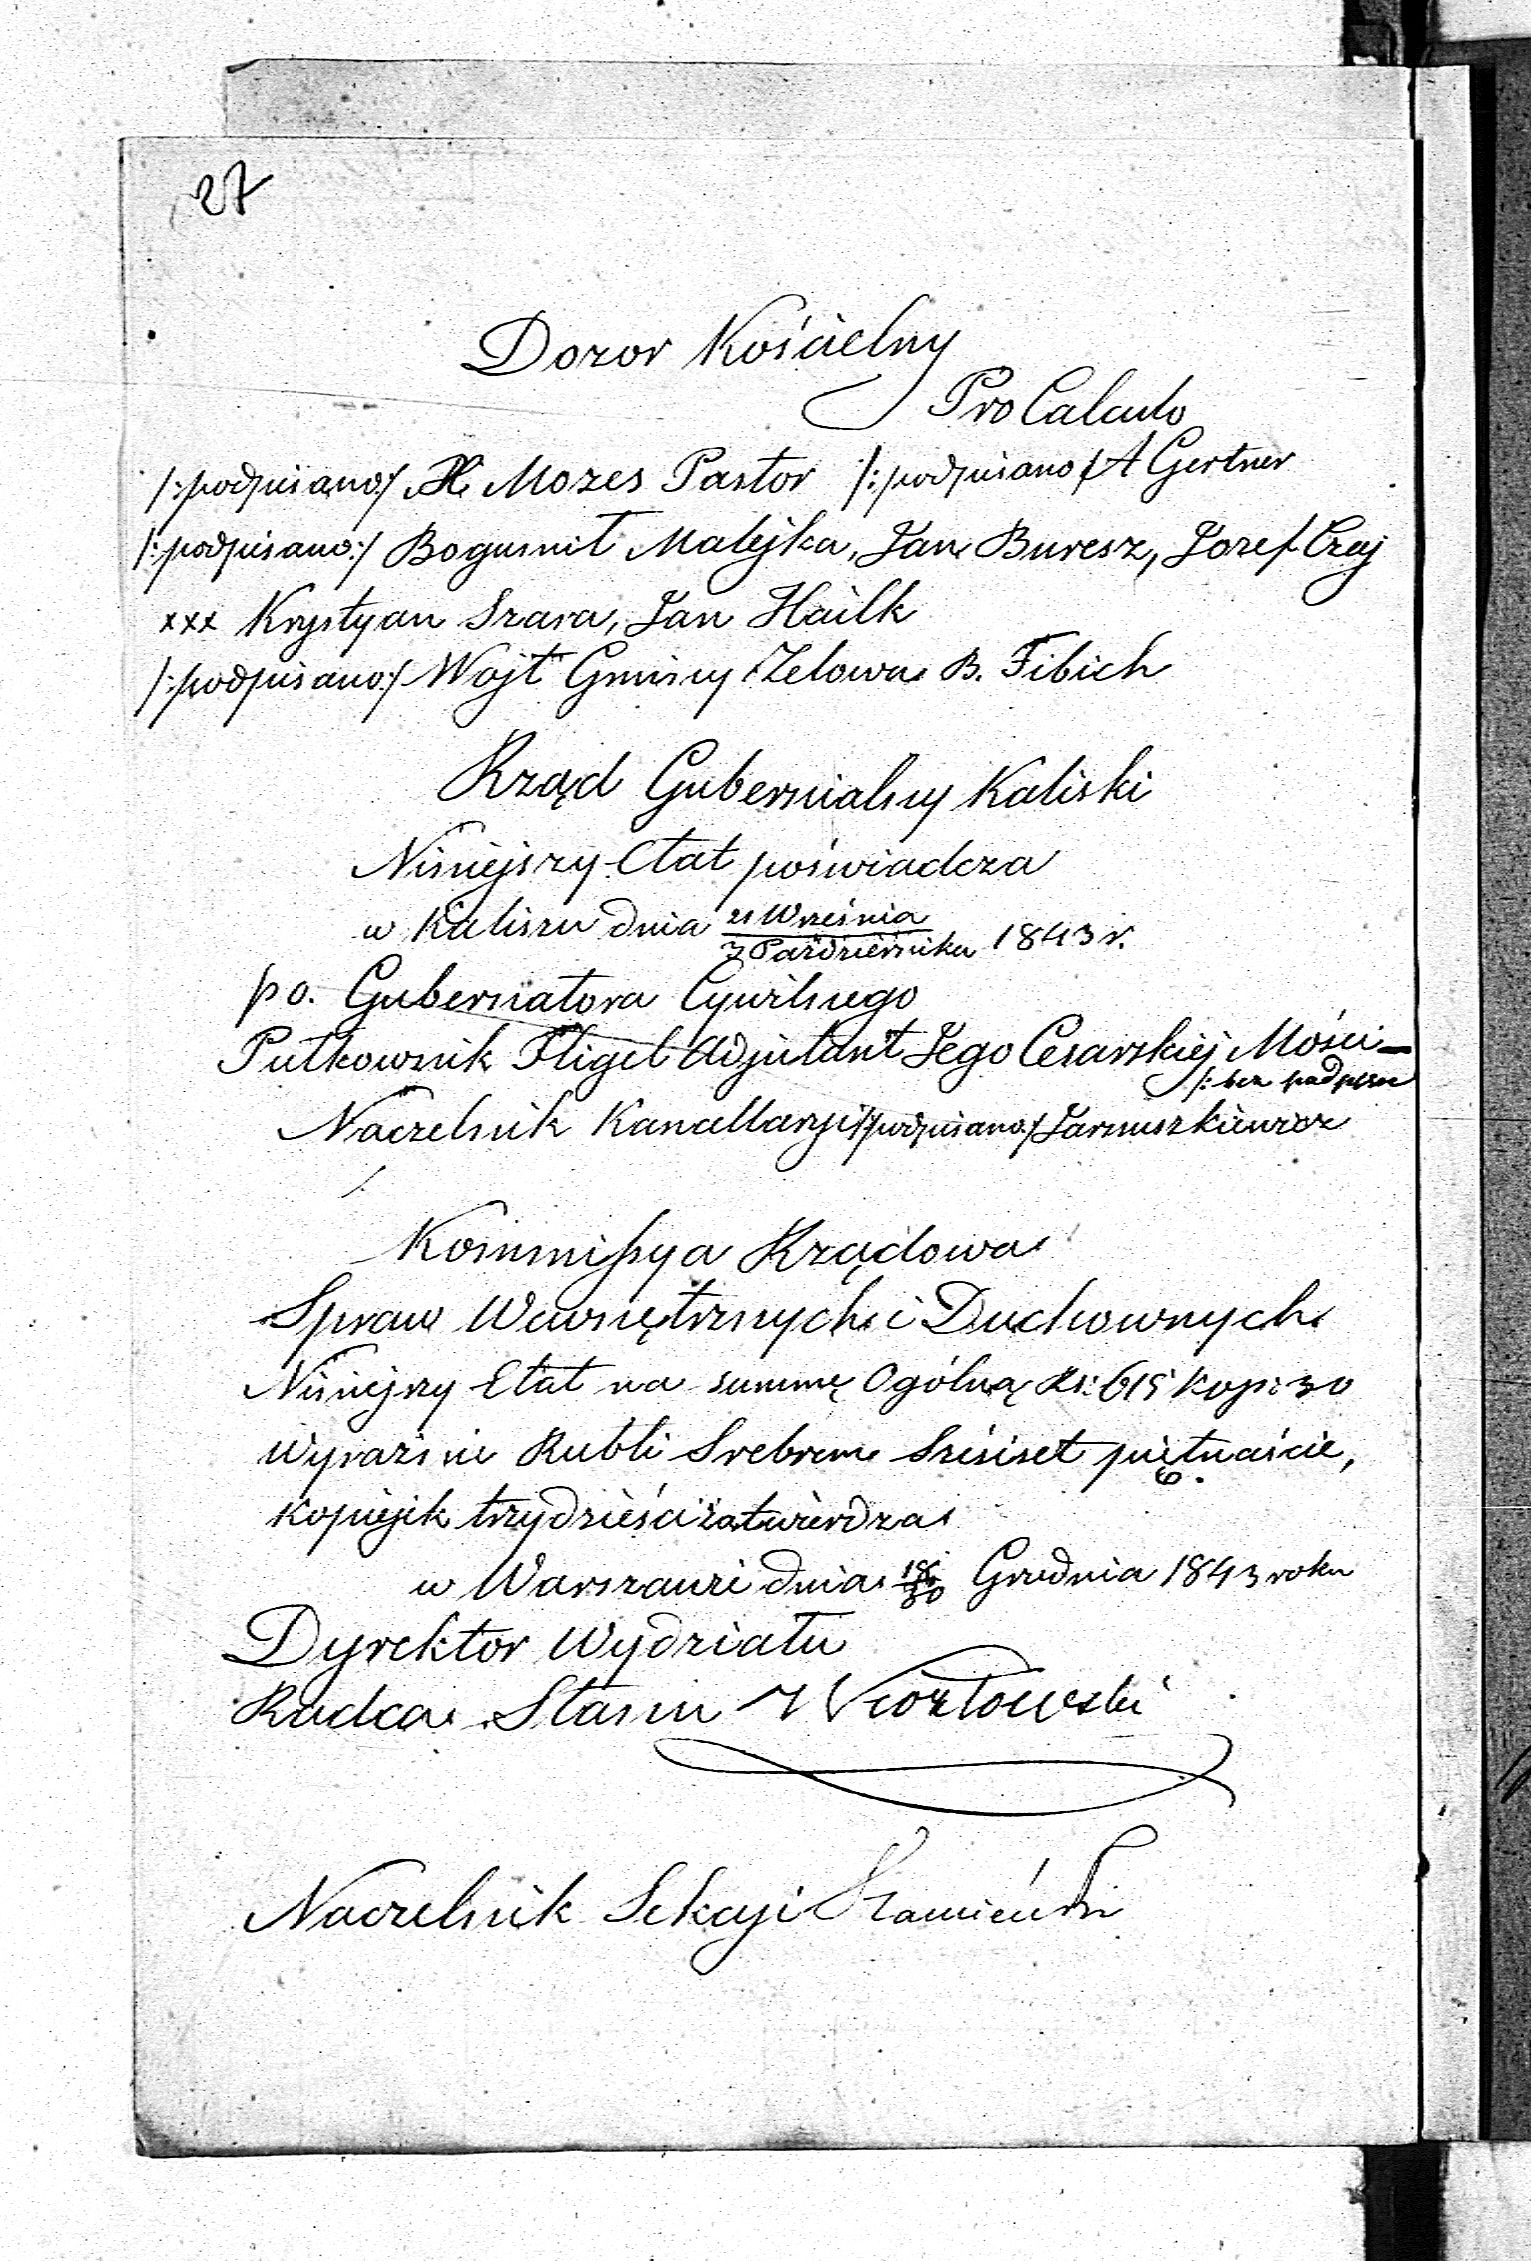 27
Dozor Kościelny
Pro Calculo
/:podpisano:/ X. Mozes Pastor /:podpisano/ A Gertner
/:podpisano:/ Bogumił Matejka, Jan Buresz, Jozef Czaj
xxx Krystyan Szara, Jan Hailk
/:podpisano:/ Wojt Gminy Zelowa B. Fibich
Rząd Gubernialny Kaliski
Niniejszy Etat poświadcza
w Kaliszu dnia 21 Września / 3 Październiku 1843 r.
po. Gubernatora Cywilnego
Pułkownik Fligel Adjutant Jego Cesarskiej Mości —
/: bez podpisu
Naczelnik Kancellaryi /podpisano:/ Jarnuszkiewicz
Kommissya Rządowa
Spraw Wewnętrznych i Duchownych
Niniejszy Etat na summę Ogólną Rs: 615 kop: 30
wyraznie Rubli Srebrem Sześset piętnaście,
kopiejek trzydzieści zatwierdza
w Warszawie dnia 18/30 Grudnia 1843 roku
Dyrektor Wydziału
Radca Stanu
Naczelnik Sekcyi Kamieński